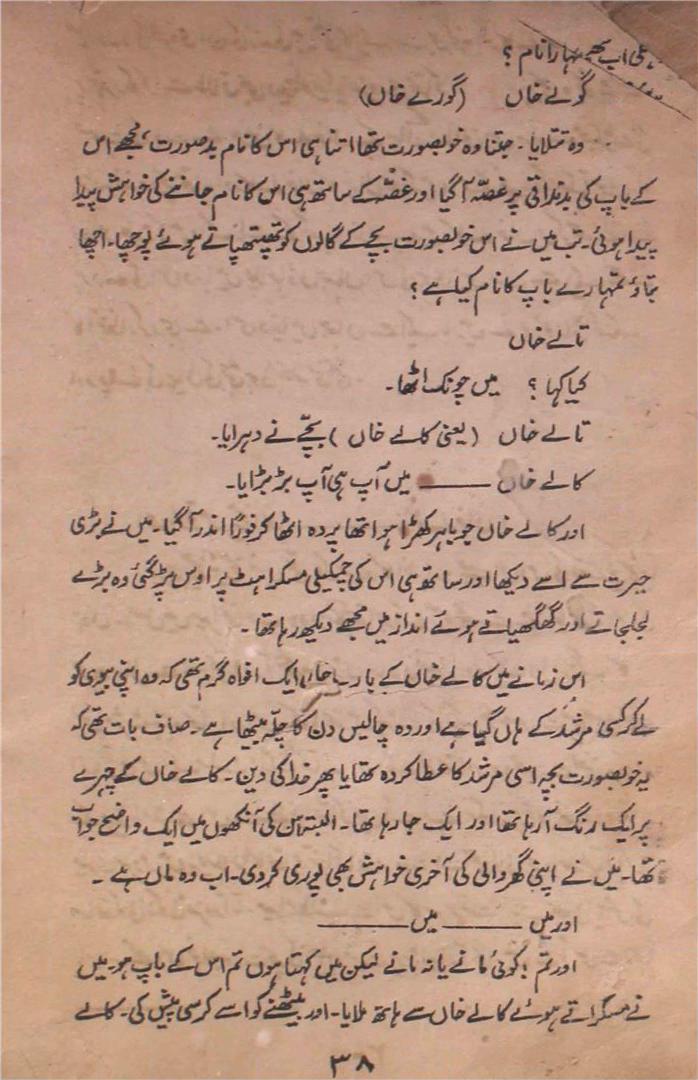 اب تمہارا نام ؟
گولے خاں (گورے خاں)
وہ تتلایا ۔ جتنا وہ خوبصورت تھا اتنا ہی اس کا نام بدصورت ، مجھے اس
کے باپ کی بدمذاقی پر غصّہ آگیا اور غصّہ کے ساتھ ہی اس کا نام جاننے کی خواہش پیدا
پیدا ہوئی ۔ تب میں نے اس خوبصورت بچے کے گالوں کو تھپتھپاتے ہوئے پوچھا ۔ اچھا
بتاؤ تمہارے باپ کا نام کیا ہے ؟
تالے خاں
کیا کہا ؟ میں چونک اٹھا ۔
تالے خاں (یعنی کالے خاں ) بچّے نے دہرایا ۔
کالے خاں ——— میں آپ ہی آپ بڑبڑایا ۔
اور کالے خاں جو باہر کھڑا ہوا تھا پردہ اٹھا کر فوراً اندر آگیا ۔ میں نے بڑی
حیرت سے اسے دیکھا اور ساتھ ہی اس کی چمکیلی مسکراہٹ پر اوس پڑگئی وہ بڑے
لجلجاتے اور گھگھیاتے ہوئے انداز میں مجھے دیکھ رہا تھا ۔
اس زمانے میں کالے خاں کے بارے ایک افواہ گرم تھی کہ وہ اپنی بیوی کو
لے کر کسی مرشد کے ہاں گیا ہے اور وہ چالیس دن کا چلّہ بیٹھا ہے ۔ صاف بات تھی کہ
یہ خوبصورت بچہ اسی مرشد کا عطا کردہ تھا یا پھر خدا کی دین ۔ کالے خاں کے چہرے
پر ایک رنگ آرہا تھا اور ایک جا رہا تھا ۔ البتہ اس کی آنکھوں میں ایک واضح جواب
تھا ۔ میں نے اپنی گھر والی کی آخری خواہش بھی پوری کردی ۔ اب وہ ماں ہے ۔
اور میں ——— میں ———
اور تم ! کوئی مانے یا نہ مانے لیکن میں کہتا ہوں تم اس کے باپ ہو ۔ میں
نے مسکراتے ہوئے کالے خاں سے ہاتھ ملایا ۔ اور بیٹھنے کو اسے کرسی پیش کی ۔ کالے
۳۸